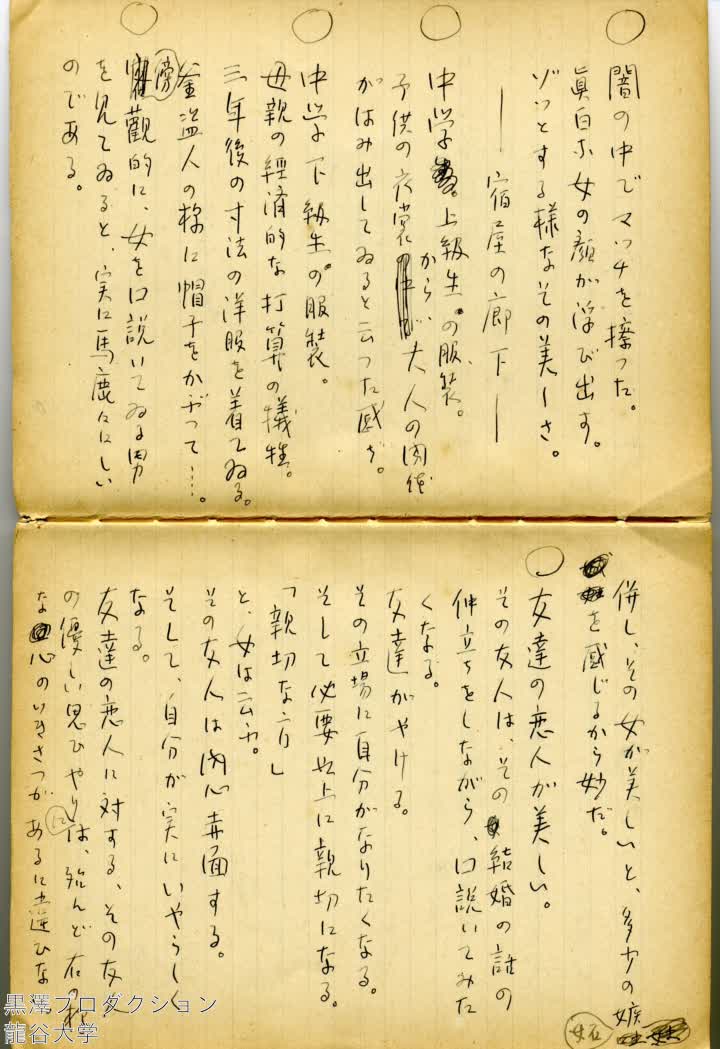 ○
闇の中でマッチを擦った。
眞白な女の顔が浮び出す。
ゾッとする様なその美しさ。
── 宿屋の廊下 ──
○
中学上級生の服装。
子供の衣裳から、大人の肉体
がはみ出してゐると云った感ぢ。
○
中学下級生の服装。
母親の經済的な打算の犠牲。
三年後の寸法の洋服を着てゐる。
釜盗人の様に帽子をかぶって…。
○
傍觀的に、女を口説いてゐる男
を見てゐると、実に馬鹿々々しい
のである。
併し、その女が美しいと、多少の嫉
妬を感じるから妙だ。
○
友達の恋人が美しい。
その友人は、その結婚の話の
仲立ちをしながら、口説いてみた
くなる。
友達がやける。
その立場に自分がなりたくなる。
そして必要以上に親切になる。
「親切な方」
と、女は云ふ。
その友人は内心赤面する。
そして、自分が実にいやらしく
なる。
友達の恋人に対する、その友人
の優しい思ひやりには、殆んど右の様
な心のいきさつがあるに違ひない。
黒澤プロダクション
龍谷大学